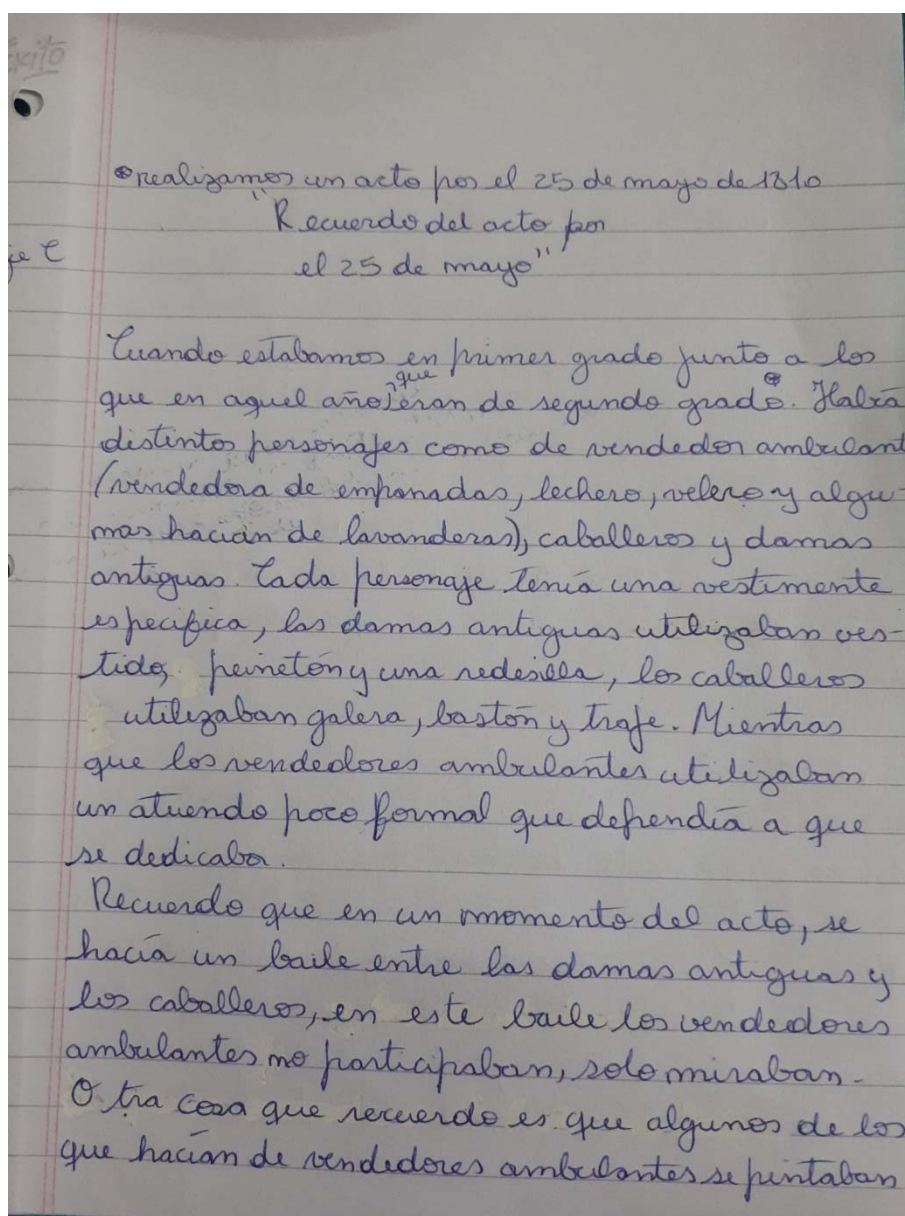 Exito
⊕realizamos un acto por el 25 de mayo de 1810
"Recuerdo del acto por
je C
el 25 de mayo"
Cuando estabamos en primer grado junto a los
que
que en aquel año, eran de segundo grado⊕. Había
distintos personajes como de vendedor ambulant
(vendedora de empanadas, lechero, velero y algu-
nas hacían de lavanderas), caballeros y damas
antiguas. Cada personaje tenía una vestimente
especifica, las damas antiguas utilizaban ves-
tido, peinetón y una redesilla, los caballeros
utilizaban galera, bastón y traje. Mientras
que los vendedores ambulantes utilizaban
un atuendo poco formal que dependía a que
se dedicaba.
Recuerdo que en un momento del acto, se
hacía un baile entre las damas antiguas y
los caballeros, en este baile los vendedores
ambulantes no participaban, solo miraban.
Otra cosa que recuerdo es que algunos de los
que hacían de vendedores ambulantes se pintaban